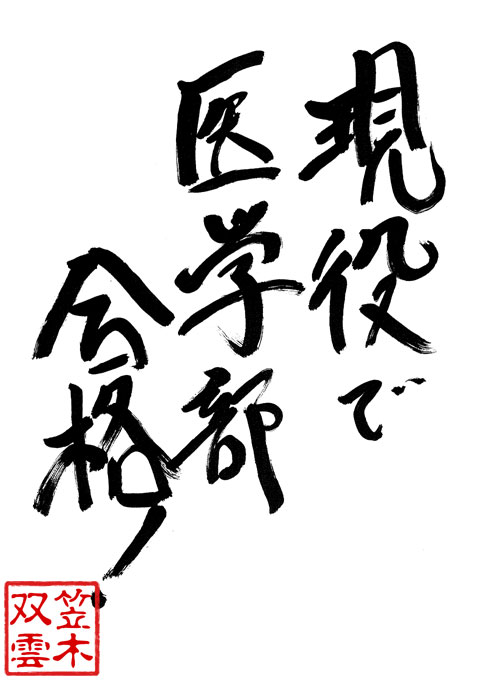 現役で
医学部
合格!
笠木
双雲